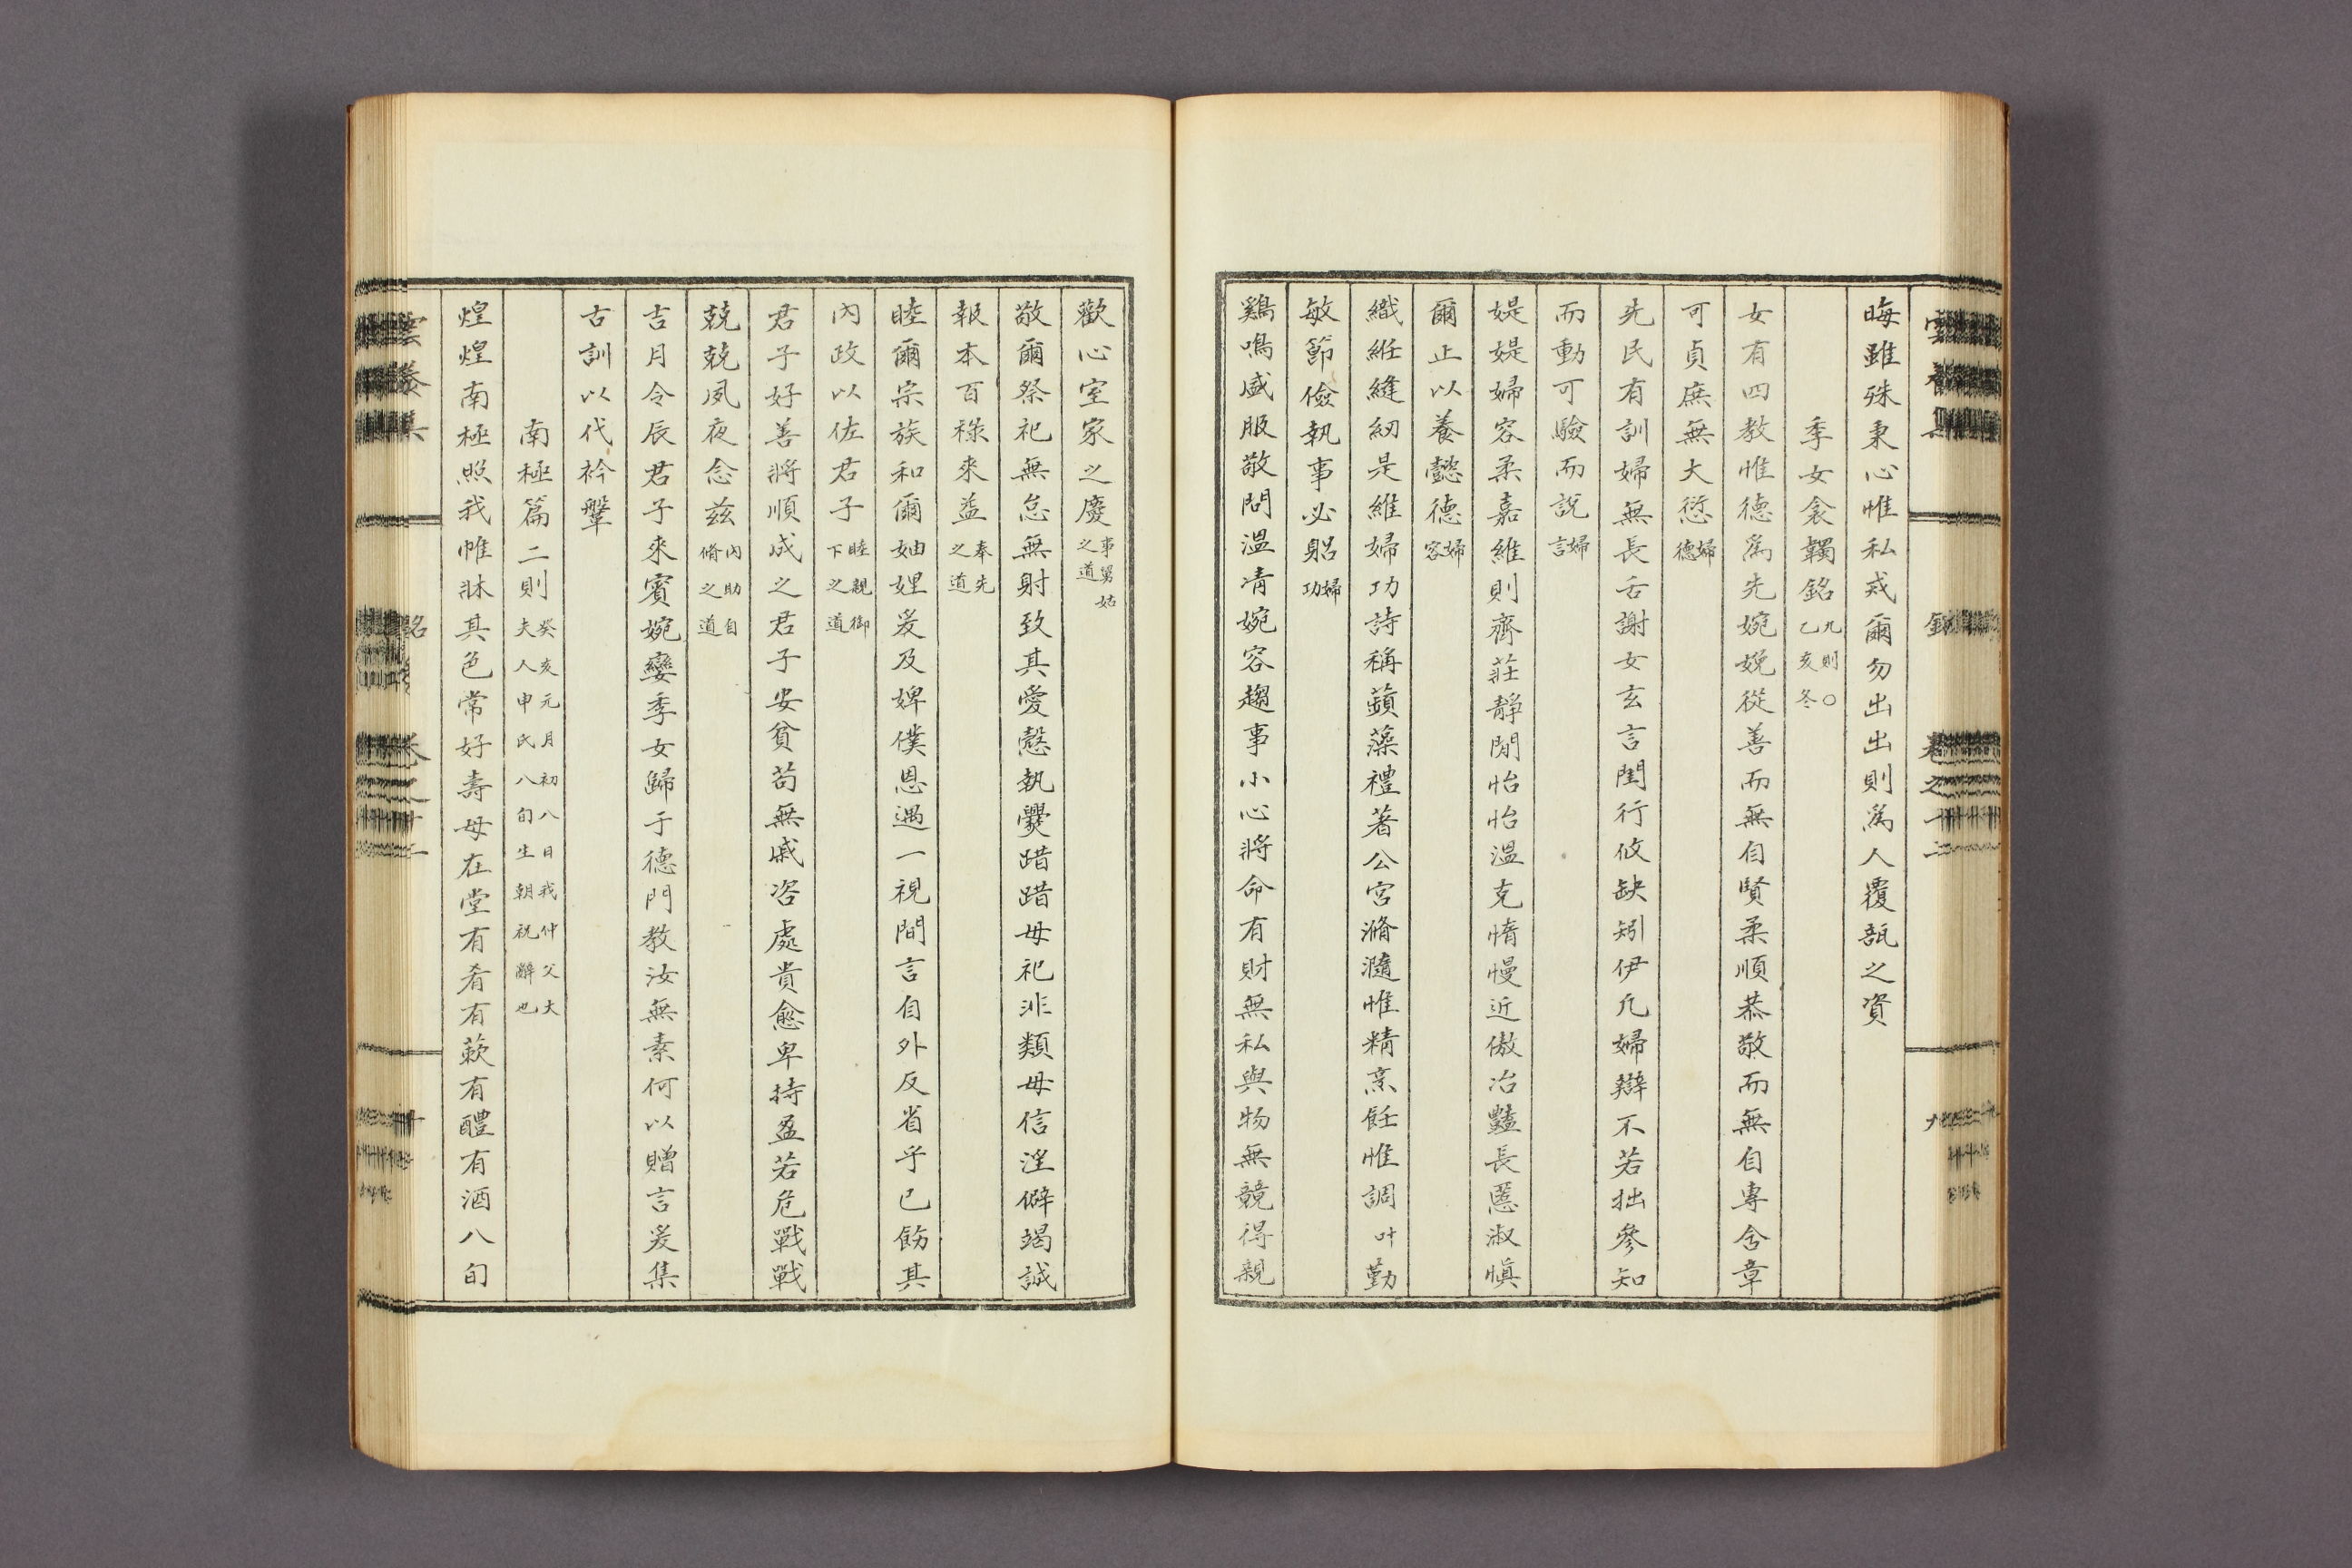 雲養集 銘 卷之十二 九
晦雖殊秉心惟私戒爾勿出出則爲人覆瓿之資
季女衾韣銘 九則○乙亥冬
女有四教惟德爲先婉娩從善而無自賢柔順恭敬而無自專含章
可貞庶無大愆 婦德
先民有訓婦無長舌謝女玄言閨行攸缺矧伊凡婦辯不若拙參知
而動可驗而說 婦言
媞媞婦容柔嘉維則齊莊靜閒怡怡溫克惰慢近傲冶豔長慝淑愼
爾止以養懿德 婦容
織紝縫紉是維婦功詩稱蘋藻禮著公宮滫瀡惟精烹飪惟調叶勤
敏節儉執事必躬 婦功
鷄鳴盛服敬問溫凊婉容趨事小心將命有財無私與物無競得親
歡心室家之慶 事舅姑之道
敬爾祭祀無怠無射致其愛慤執爨踖踖毋祀非類毋信淫僻竭誠
報本百祿來益 奉先之道
睦爾宗族和爾妯娌爰及婢僕恩遇一視間言自外反省乎己飭其
內政以佐君子 睦親御下之道
君子好善將順成之君子安貧苟無戚咨處貴愈卑持盈若危戰戰
兢兢夙夜念茲 內助自脩之道
吉月令辰君子來賓婉孌季女歸于德門敎汝無素何以贈言爰集
古訓以代衿鞶
南極篇二則 癸亥元月初八日我仲父大夫人申氏八旬生朝祝辭也
煌煌南極照我帷牀其色常好壽母在堂有肴有蔌有醴有酒八旬
雲養集 銘 卷之十二 十